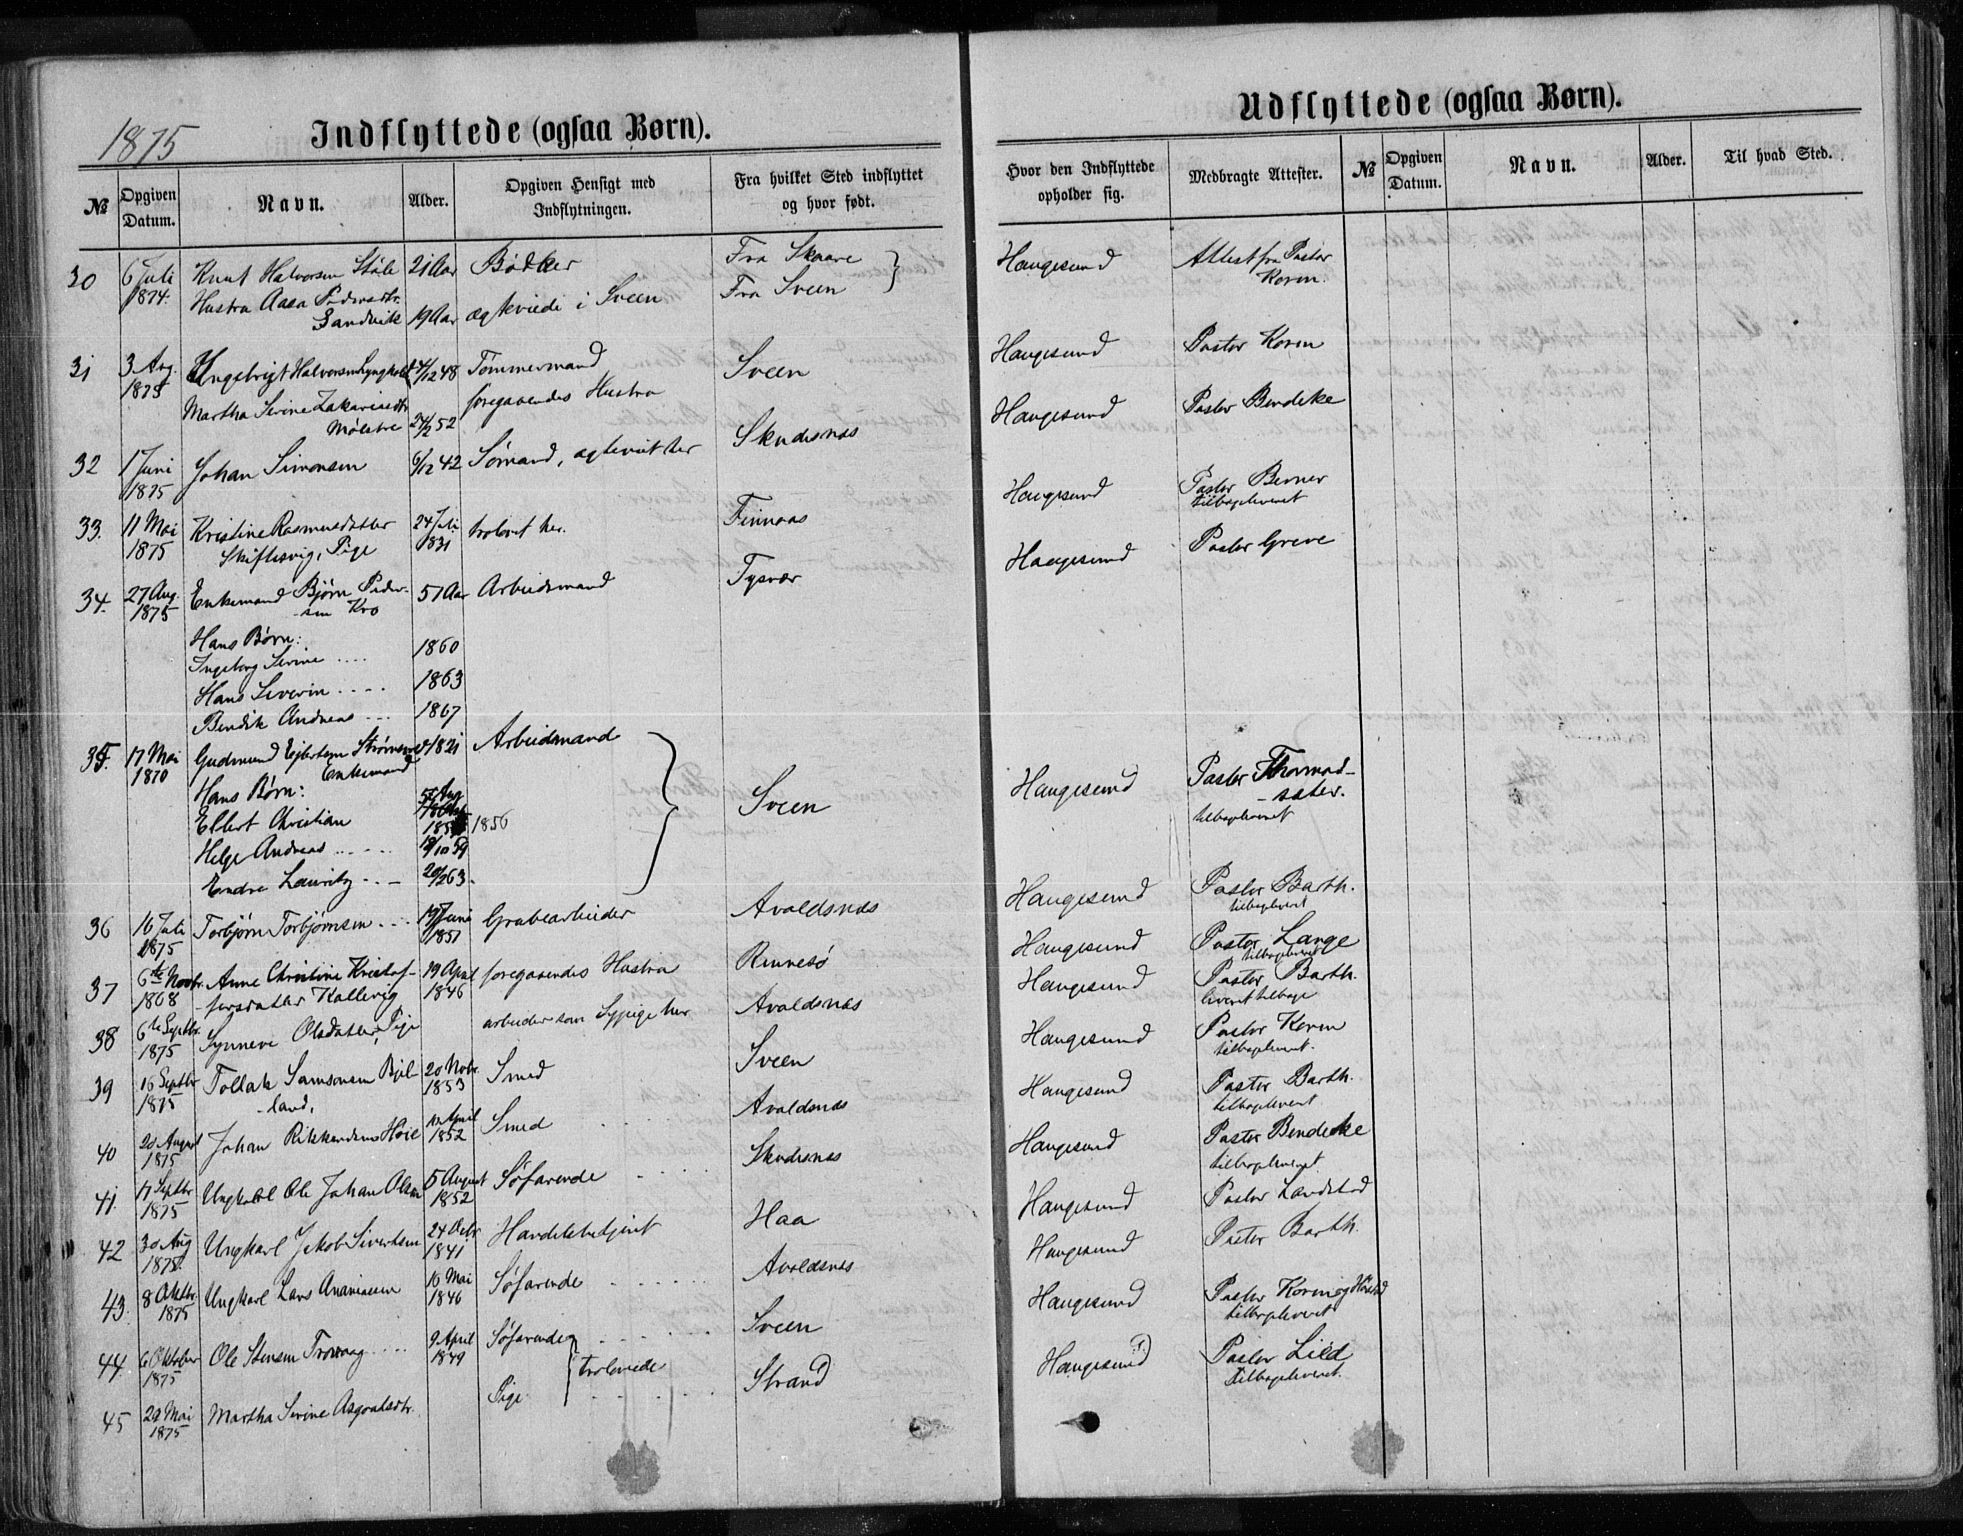 1875
Indflyttede (ogsaa Børn).
Udflyttede (ogsaa Børn).
№ Opgiven Datum. Navn. Alder. Opgiven Hensigt med Indflytningen. Fra hvilket Sted indflyttet og hvor født. Hvor den Indflyttede opholder sig. Medbragte Attester. № Opgiven Datum. Navn. Alder. Til hvad Sted.
30 6 Juli Knut Halvorsen Støle 21 Aar Bødker Fra Skaare } Haugesund Attest fra Pastor
1874. Hustru Aasa Pedersdtr. Fra Sveen Koren.
Sandvik 19 Aar ægteviede i Sveen
31 3 Aug. Engebrigt Halvorsen 4/12 48 Tømmermand Sveen Haugesund Pastor Koren
1875 Martha Serine Zakariasdtr foregaaendes Hustru
Mølstre 24/2 52
32 1 Juni Johan Simonsen 6/12 42 Sømand, ægteviet her Skudesnæs Haugesund Pastor Bendeke
1875
33. 11 Mai Kristine Rasmusdatter 24 Juli trolovet her. Finnaas Haugesund Pastor Berner
1875 Skiftesvig, Pige 1831 tilbageleveret
34. 27 Aug. Enkemand Bjørn Peder- 51 Aar Arbeidsmand Tysvær Haugesund Pastor Greve
1875 sen Kro
Hans Børn:
Ingeborg Serine .... 1860
Hans Severin .... 1863
Bendik Andreas ... 1867
35. 17 Mai Gudmund Ejlertsen 1821 Arbeidsmand
1870 Enkemand
Hans Børn: } Sveen Haugesund Pastor Thormod-
Ellert Christian 1856 sæter.
Helge Andreas ..... 18/10 59 tilbageleveret
Endre Lauritz .. 20/2 63.
36 16 Juli Torbjørn Torbjørnsen .... 19 Juni Grubearbeider Avaldsnæs Haugesund Pastor Barth.
1875 1851 tilbageleveret
37 6te Novbr. Anne Christine Kristof- 19 April foregaaendes Hustru Rennesø Haugesund Pastor Lange
1868 fersdatter Kallevig 1846 tilbageleveret
38 6te Septbr. Synneve Olsdatter, Pige arbeider som Sypige her Avaldsnæs Haugesund Pastor Barth.
1875 leveret tilbage
39 16 Septbr. Tollak Samsonsen Bjel- 20 Novbr. Smed Sveen Haugesund Pastor Koren
1875 land, 1853 tilbageleveret.
40 20 August Johan Rikkardsen Høie April Smed Avaldsnæs Haugesund Pastor Barth.
1875 1852 tilbageleveret
41. 17 Septbr. Ungkarl Ole Johan Olsen 5 August Søfarende Skudesnæs Haugesund Pastor Bendeke
1875 1852 tilbageleveret.
42 30 Aug Ungkarl Jakob Sivertsen 24 Octbr Handelsbetjent Haa Haugesund Pastor Landstad
1875. 1841
43. 8 Oktbr. Ungkarl Lars Ananiassen 16 Mai Søfarende ...... Avaldsnæs Haugesund Pastor Barth.
1875 1846
44. 6 Oktober Ole Stensen .... 9 April Søfarende } ...... Sveen Haugesund Pastor Koren og
1875 1849 trolovede tilbageleveret
45 29 Mai Martha Serine Asgoutsdtr. Pige ...... Strand Haugesund Pastor Lied
1875 tilbageleveret.